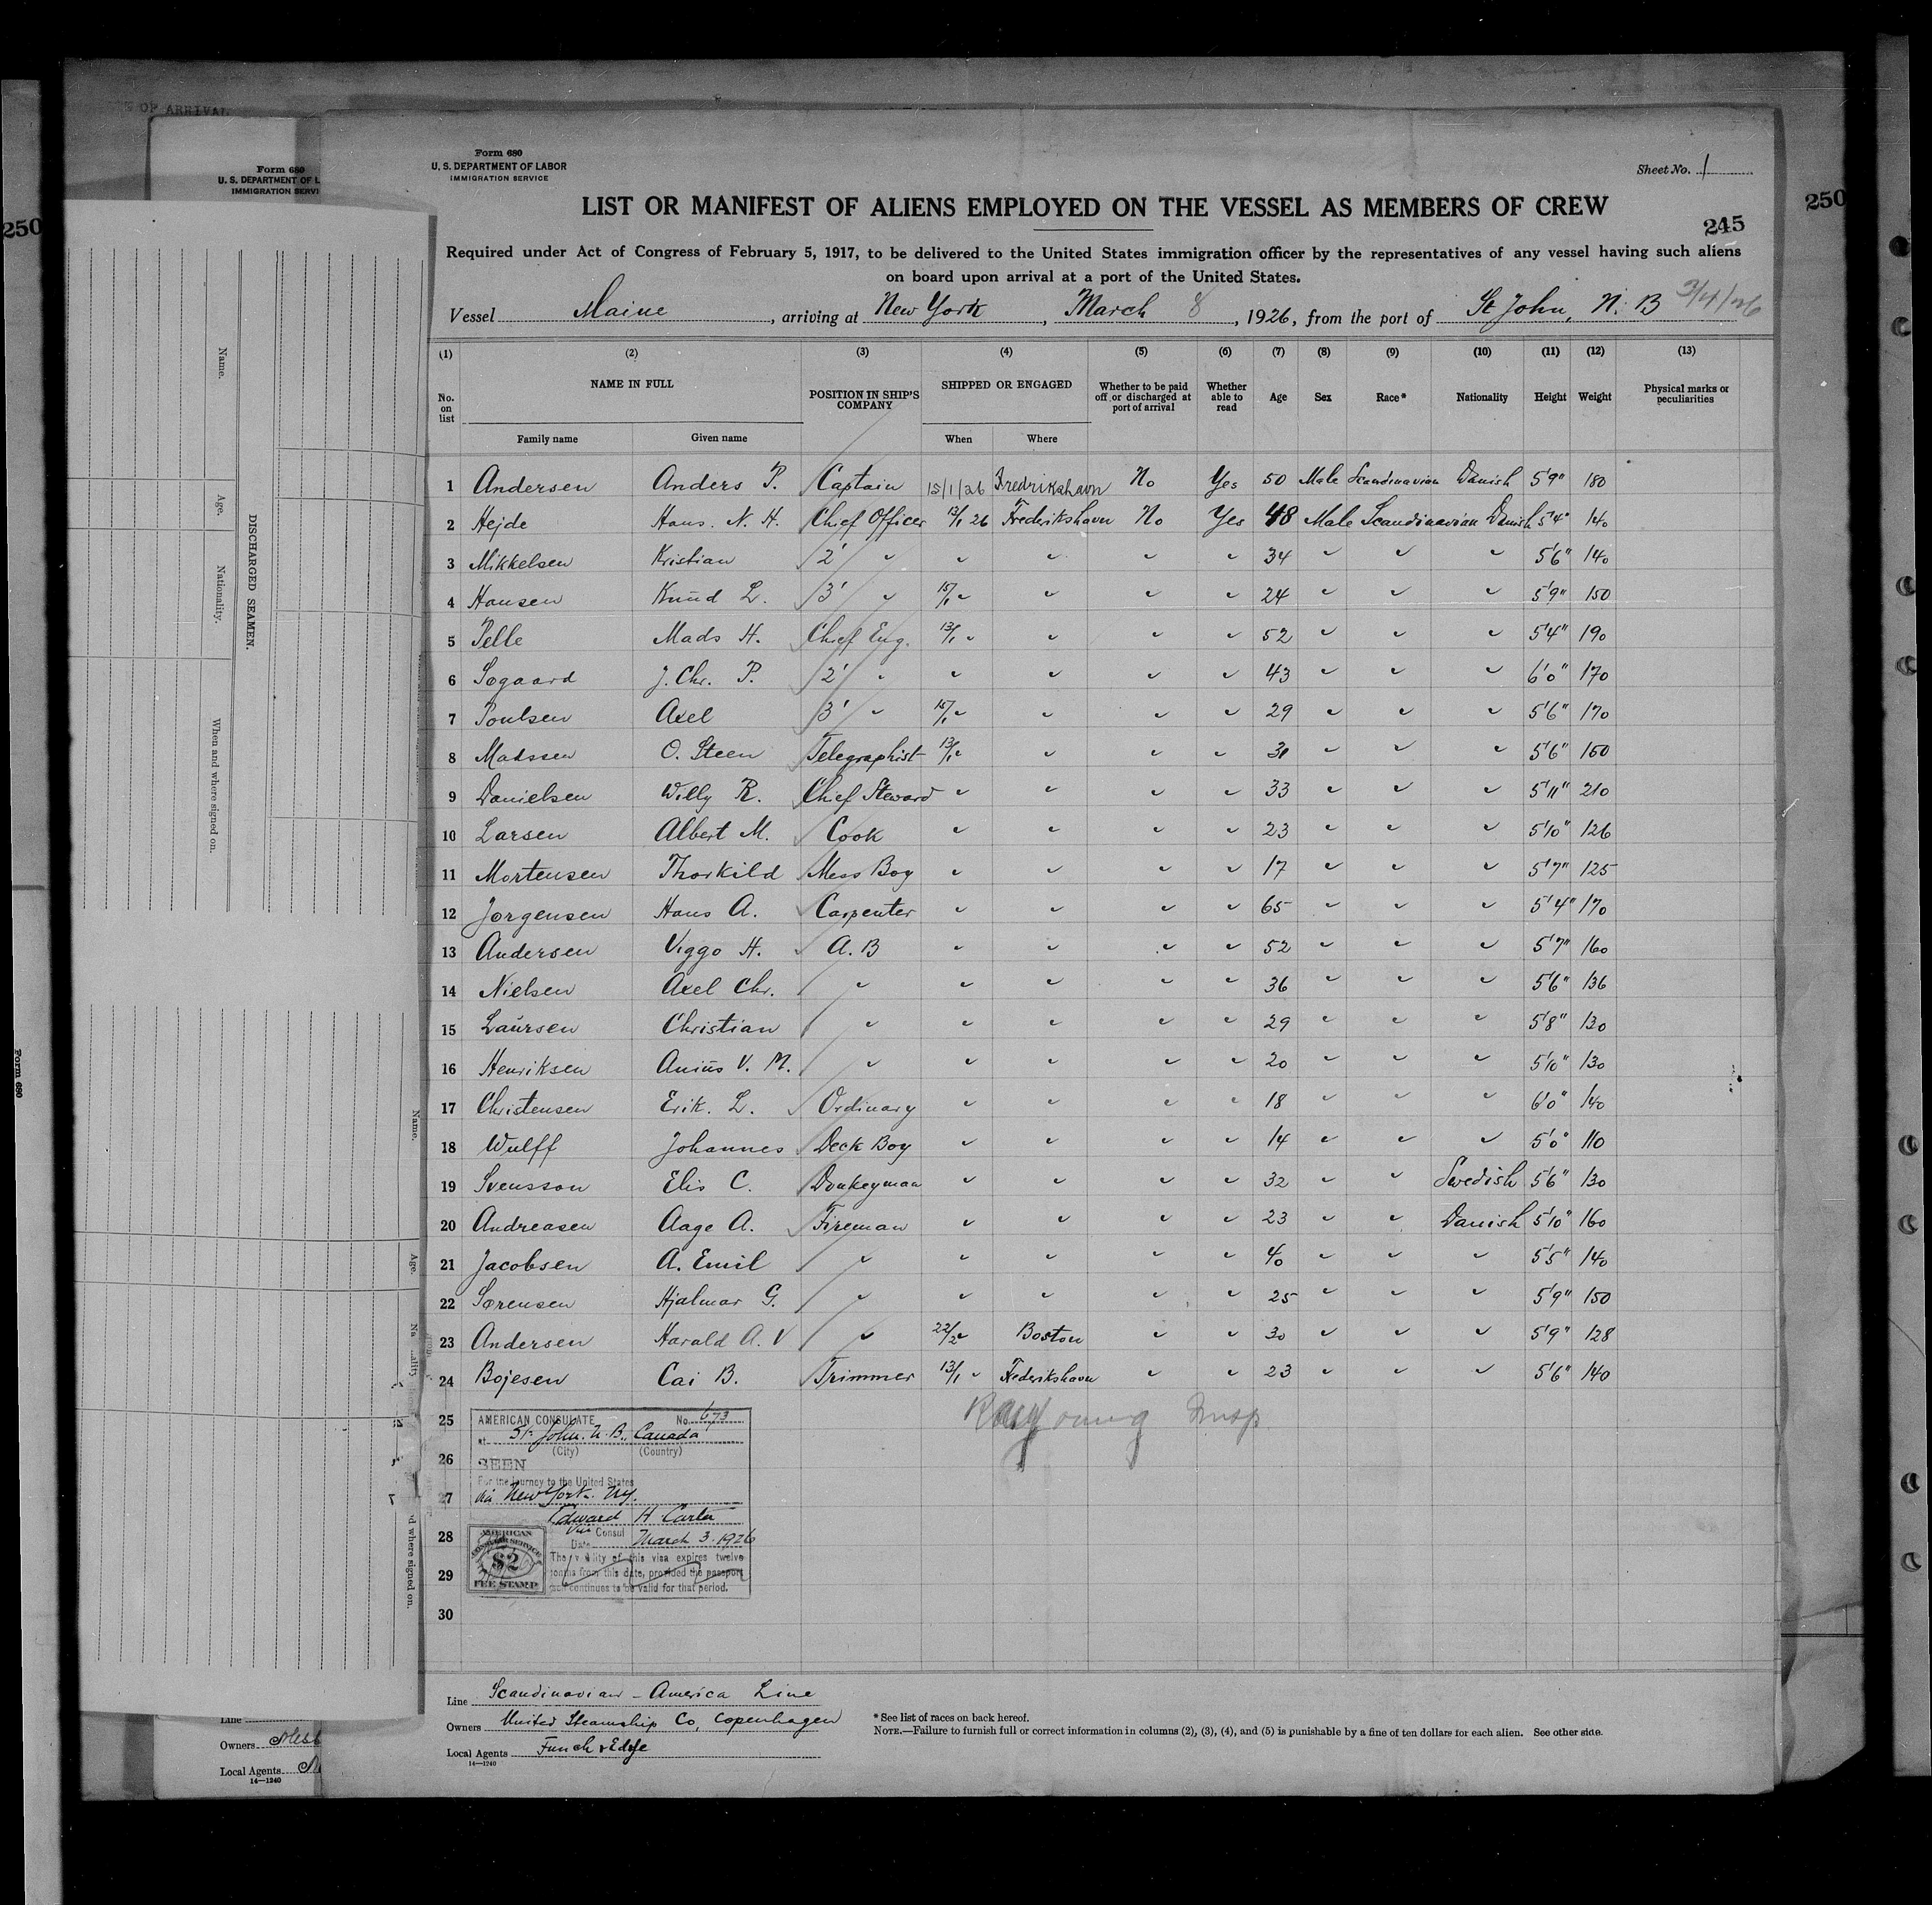 OF ARRIVAL
Form 680
U. S. DEPARTMENT OF L
IMMIGRATION SERVI
250
Name.
Age.
Nationality.
When and where signed on.
DISCHARGED SEAMEN.
Form 680
Name.
Age.
d where signed on.
Line
Owners
Local Agents
14—1240
Form 680
U. S. DEPARTMENT OF LABOR
IMMIGRATION SERVICE
Sheet No. 1
250
LIST OR MANIFEST OF ALIENS EMPLOYED ON THE VESSEL AS MEMBERS OF CREW
245
Required under Act of Congress of February 5, 1917, to be delivered to the United States immigration officer by the representatives of any vessel having such aliens
on board upon arrival at a port of the United States.
Vessel Maine, arriving at New York, March 8, 1926, from the port of St John, N. B 3/4/26
(1) (2) (3) (4) (5) (6) (7) (8) (9) (10) (11) (12) (13)
No. on list NAME IN FULL POSITION IN SHIP'S COMPANY SHIPPED OR ENGAGED Whether to be paid off or discharged at port of arrival Whether able to read Age Sex Race* Nationality Height Weight Physical marks or peculiarities
Family name Given name When Where
1 Andersen Anders P. Captain 15/1/26 Fredrikshavn No Yes 50 Male Scandinavian Danish 5'9" 180
2 Hejde Hans. N. H. Chief Officer 13/1 26 Frederikshavn No Yes 48 Male Scandinavian Danish 5'4" 140
3 Mikkelsen Kristian 2' " " " " " 34 " " " 5'6" 140
4 Hansen Knud L. 3' " 15/1 " " " " 24 " " " 5'9" 150
5 Pelle Mads H. Chief Eng. 13/1 " " " " 52 " " " 5'4" 190
6 Søgaard J. Chr. P. 2' " " " " " 43 " " " 6'0" 170
7 Poulsen Axel 3' " 15/1 " " " " 29 " " " 5'6" 170
8 Madssen O. Steen Telegraphist 13/1 " " " " " " " 5'6"
9 Danielsen Willy R. Chief Steward " " " " 33 " " " 5'11" 210
10 Larsen Albert M. Cook " " " " 23 " " " 5'10" 126
11 Mortensen Thorkild Mess Boy " " " " 17 " " " 5'7" 125
12 Jørgensen Hans A. Carpenter " " " " 65 " " " 5'4" 170
13 Andersen Viggo H. A. B " " " " 52 " " " 5'7" 160
14 Nielsen Axel Chr. " " " " " 36 " " " 5'6" 136
15 Laursen Christian " " " " " 29 " " " 5'8" 130
16 Henriksen Anius V. M. " " " " " 20 " " " 5'10" 130
17 Christensen Erik. L. Ordinary " " " " 18 " " " 6'0" 140
18 Wulff Johannes Deck Boy " " " " 14 " " " 5'0" 110
19 Svensson Elis C. Donkeyman " " " " 32 " " Swedish 5'6" 130
20 Andreasen Aage A. Fireman " " " " 23 " " Danish 5'10" 160
21 Jacobsen A. Emil " " " " " 40 " " " 5'5" 140
22 Sørensen Hjalmar G. " " " " " 25 " " " 5'9" 150
23 Andersen Harald A. V " 22/2 " Boston " " 30 " " " 5'9" 128
24 Bojesen Cai B. Trimmer 13/1 " Frederikshavn " " 23 " " " 5'6" 140
25
26
27
28
29
30
AMERICAN CONSULATE No. 673
at St John. N. B., Canada
(City) (Country)
SEEN
For the journey to the United States
via New York. N.Y.
Edward H Carter
Vice Consul
Date March 3. 1926
The validity of this visa expires twelve
months from this date, provided the passport
continues to be valid for that period.
AMERICAN
CONSULAR SERVICE
$2
FEE STAMP
Young Insp
Line Scandinavian-America Line
Owners United Steamship Co, Copenhagen
Local Agents Funch & Edye
14—1240
*See list of races on back hereof.
NOTE.—Failure to furnish full or correct information in columns (2), (3), (4), and (5) is punishable by a fine of ten dollars for each alien. See other side.